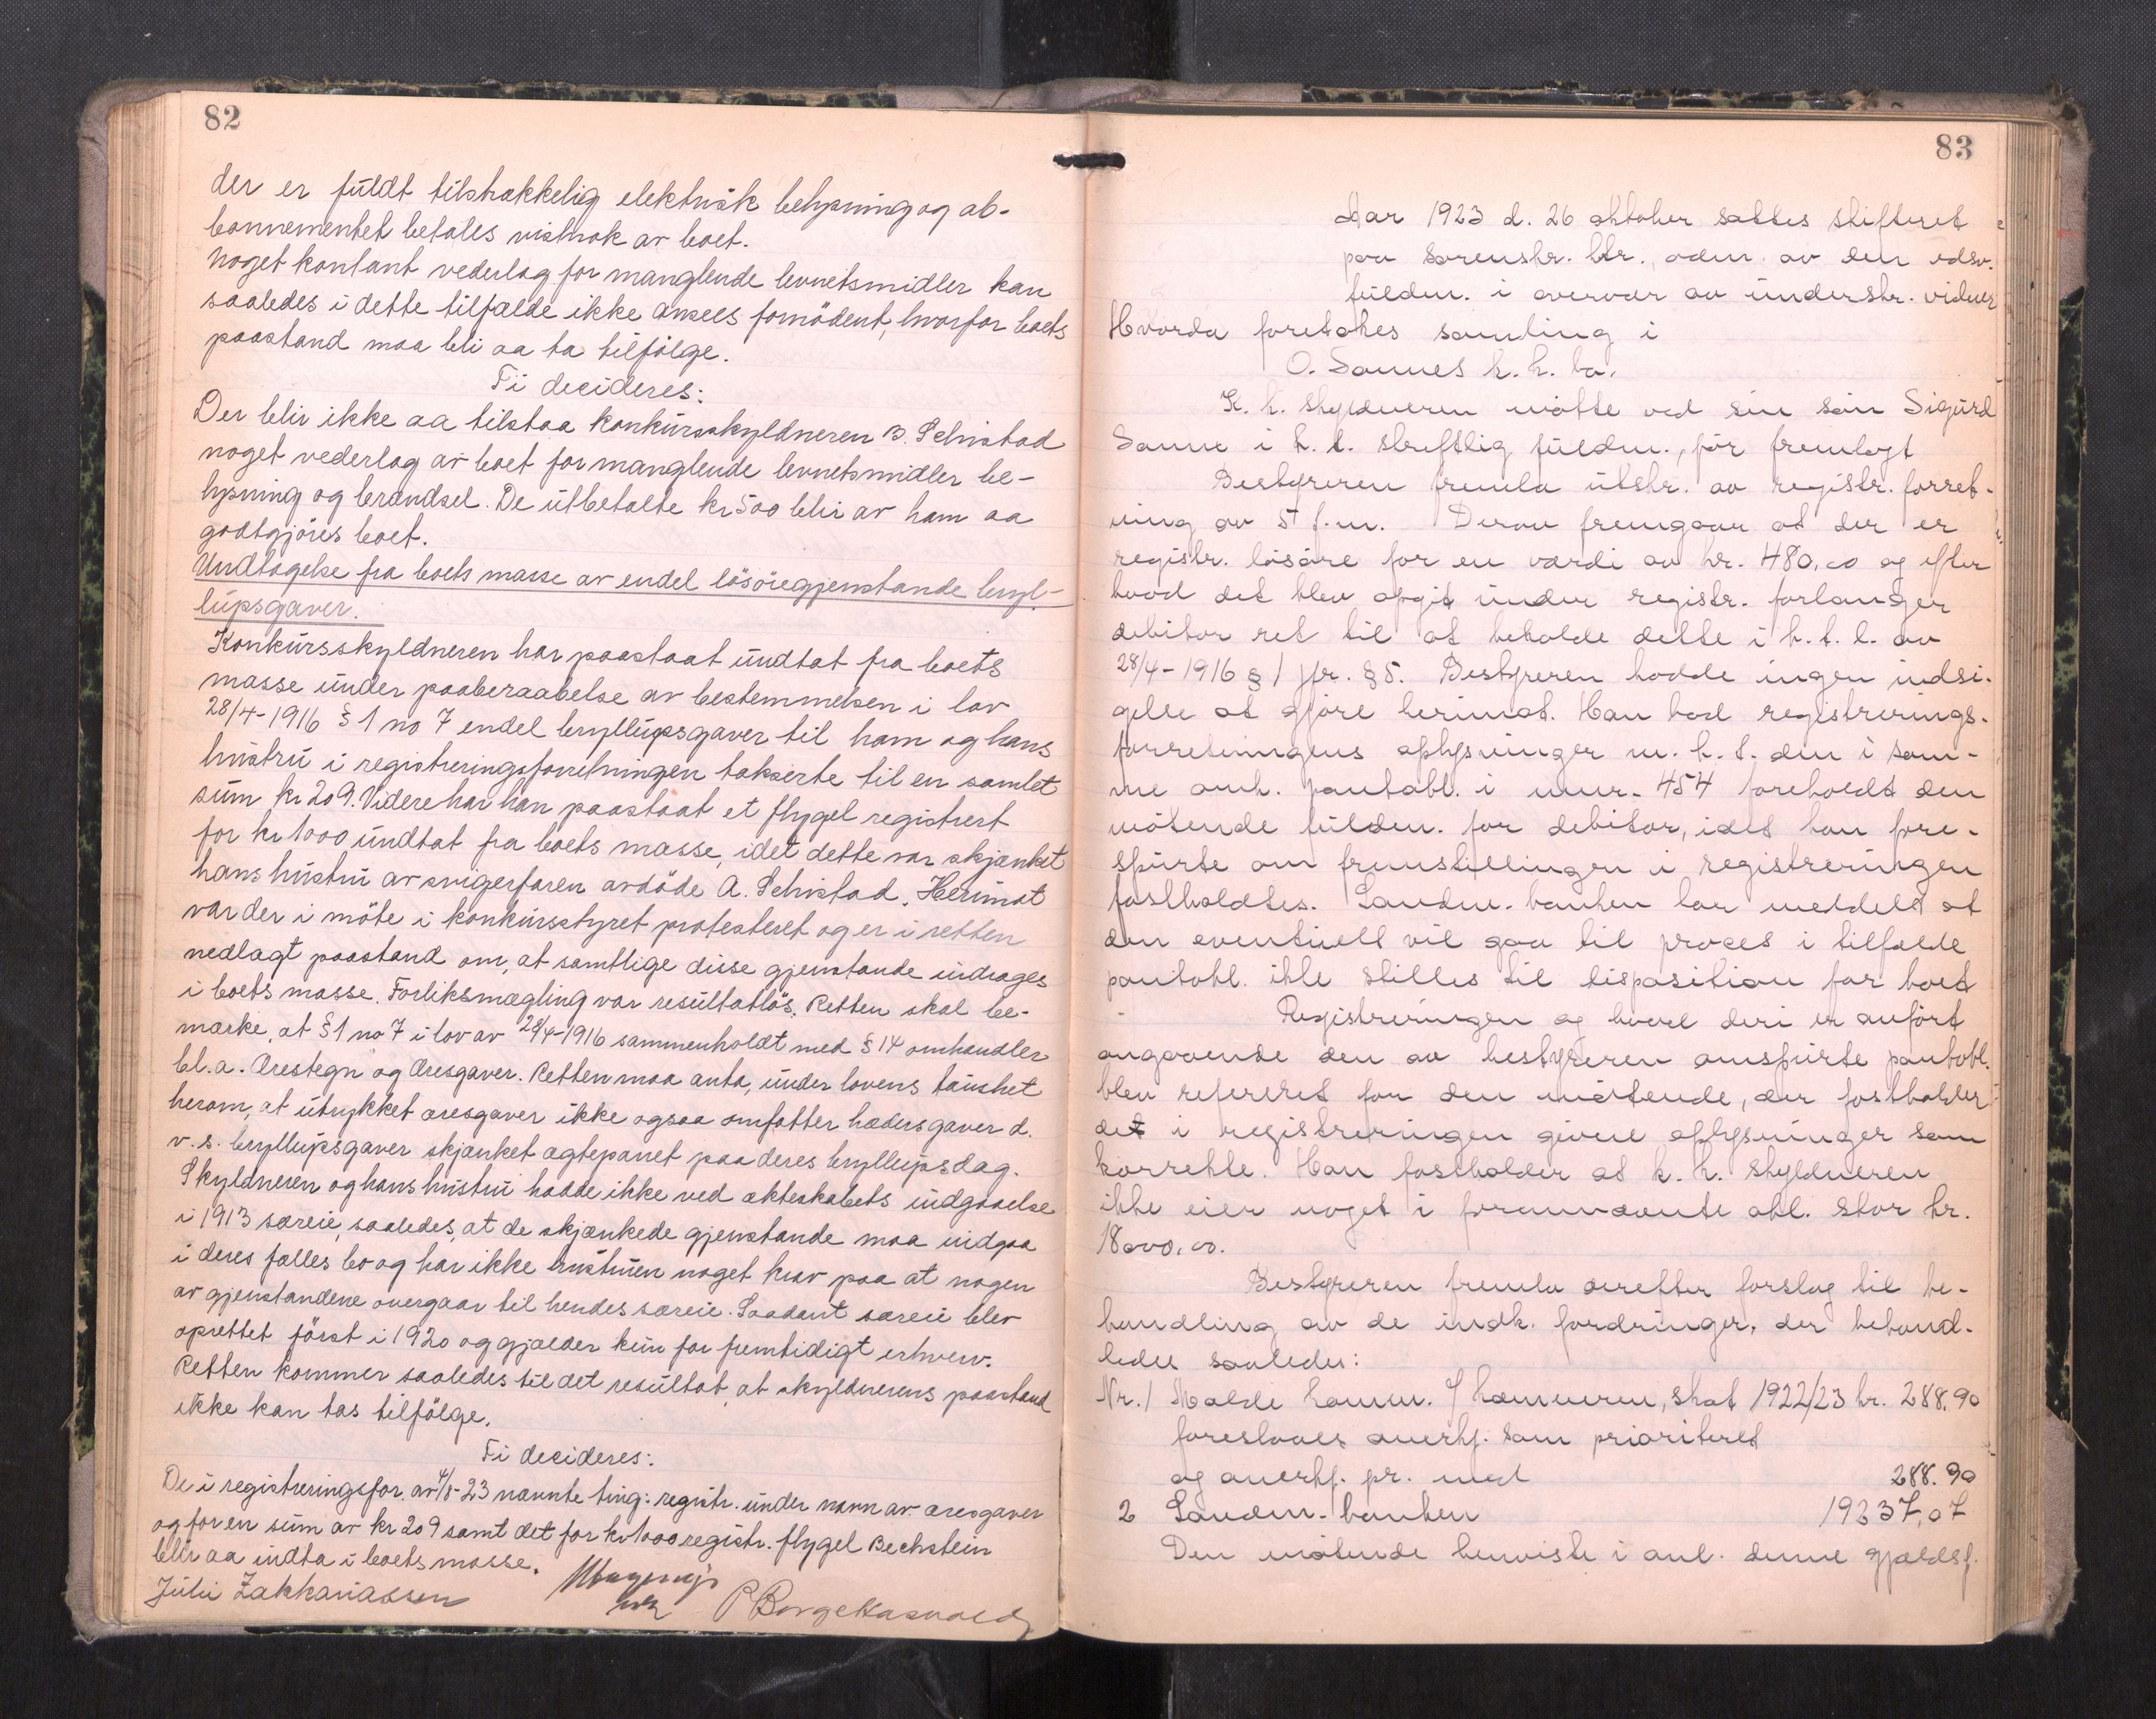 82
der er fuldt tilstrækkelig elektrisk belysning og ab-
bonnementet betales vistnok av boet.
Noget kontant vederlag for manglende levnetsmidler kan
saaledes i dette tilfælde ikke ansees fornödent, hvorfor boets
paastand maa bli aa ta tilfölge.
Ti decideres:
Der blir ikke aa tilstaa konkursskyldneren B. Schistad
noget vederlag av boet for manglende levnetsmidler be-
lysning og brændsel. De utbetalte kr 500 blir av ham aa
godtgjöres boet.
Undtagelse fra boets masse av endel lösöregjenstande bryl-
lupsgaver.
Konkursskyldneren har paastaat undtat fra boets
masse under paaberaabelse av bestemmelsen i lov
28/4-1916 § 1 no 7 endel bryllupsgaver til ham og hans
hustru i registreringsforretningen takserte til en samlet
sum kr 209. Videre har han paastaat et flygel registrert
for kr 1000 undtat fra boets masse, idet dette var skjænket
hans hustru av svigerfaren avdöde A. Schistad. Herimot
var der i möte i konkursstyret protesteret og er i retten
nedlagt paastand om, at samtlige disse gjenstande inddrages
i boets masse. Forliksmægling var resultatlös. Retten skal be-
mærke, at § 1 no 7 i lov av 28/4-1916 sammenholdt med § 14 omhandler
bl.a. Ærestegn og Æresgaver. Retten maa anta, under lovens taushet
herom, at utrykket æresgaver ikke ogsaa omfatter hædersgaver d.
v.s. bryllupsgaver skjænket ægteparret paa deres bryllupsdag.
Skyldneren og hans hustru hadde ikke ved ækteskabets indgaaelse
i 1913 særeie, saaledes, at de skjænkede gjenstande maa indgaa
i deres fælles bo og har ikke hustruen noget krav paa at nogen
av gjenstandene overgaar til hendes særeie. Saadant særeie blev
oprettet först i 1920 og gjælder kun for fremtidigt erhverv.
Retten kommer saaledes til det resultat, at skyldnerens paastand
ikke kan tas tilfölge.
Ti decideres:
De i registreringsfor. av 4/8-23 nævnte ting: registr. under navn av æresgaver
og for en sum av kr 209 samt det for kr 1000 registr. flygel Bechstein
blir aa indta i boets masse.
Julii Zakkariassen
P Borge Hasvold
83
Aar 1923 d. 26 oktober sattes skifteret
paa sorenskr. ktr., adm. av den edsv.
fuldm. i overvær av underskr. vidner
Hvorda foretokes samling i
O. Sannes k. k. bo.
K. k. skyldneren mötte ved sin sön Sigurd
Sanne i h. t. skriftlig fuldm., för fremlagt
Bestyreren fremla utskr. av registr. forret-
ning av 5 f.m. Derav fremgaar at der er
registr. lösöre for en værdi av kr. 480,00 og efter
hvad det blev opgit under registr. forlanger
debitor ret til at beholde dette i h. t. l. av
28/4-1916 § 1 jfr. § 5. Bestyreren hadde ingen indsi-
gelse at gjöre herimot. Han bad registrerings-
forretningens oplysninger m. h. t. den i sam-
me omh. pantobl. i mnr. 454 foreholdt den
mötende fuldm. for debitor, idet han fore-
spurte om fremstillingen i registreringen
fastholdtes. Landm. banken har meddelt at
den eventuelt vil gaa til proces i tilfælde
pantobl. ikke stilles til disposition for boet
Registreringen og hvad deri er anfört
angaaende den av bestyreren omspurte pantobl.
blev refereret for den mötende, der fastholder
det i registreringen givne oplysninger som
korrekte. Han fastholder at k. k. skyldneren
ikke eier noget i forannævnte obl. stor kr.
18000,00.
Bestyreren fremla derefter forslag til be-
handling av de indk. fordringer, der behand-
ledes saaledes:
Nr. 1 Molde komm. v/ kæmneren, skat 1922/23 kr. 288,90
foreslaaes anerkj. som prioriteret
og anerkj. pr. med 288.90
2 Landm-banken 19237,07
Den mötende henviste i anl. denne gjældsf.